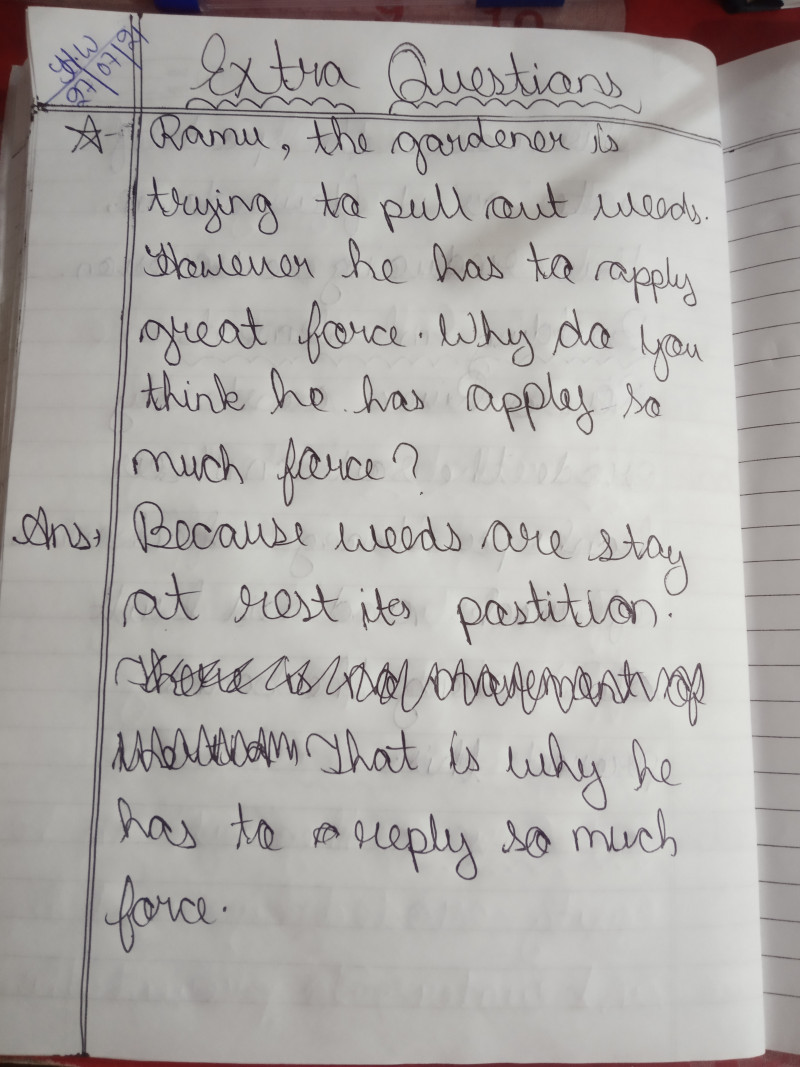 Extra Questions
Ramu, the gardener is
trying to pull out weeds.
However he has to apply
great force. Why do you
think he has apply so
much force?
Ans, Because weeds are stay
at rest its pastition.
That is why he
has to reply so much
force.